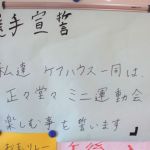 選手宣誓
私達 ケアハウス一同は、
正々堂々ミニ運動会
楽しむ事を誓います」